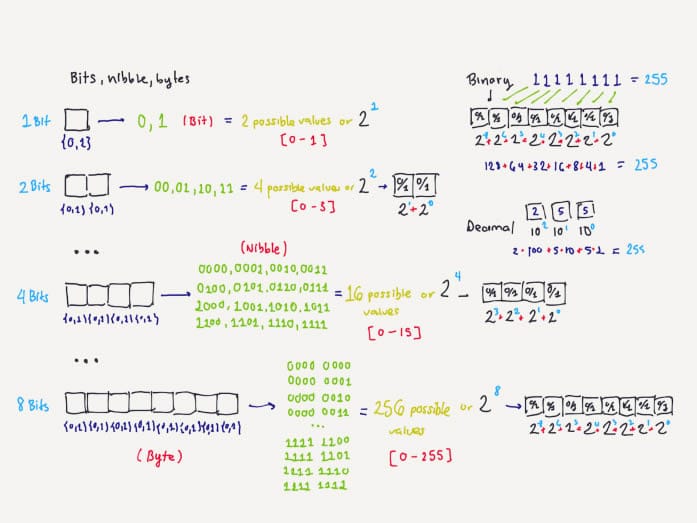 Bits, nibble, bytes
1 Bit
{0,1}
0, 1 (Bit) = 2 possible values or 2^1
[0-1]
2 Bits
{0,1} {0,1}
00,01,10,11 = 4 possible values or 2^2 → 0/1 0/1
[0-3]
2^1 + 2^0
...
(Nibble)
4 Bits
{0,1} {0,1} {0,1} {0,1}
0000, 0001, 0010, 0011
0100, 0101, 0110, 0111
1000, 1001, 1010, 1011
1100, 1101, 1110, 1111
= 16 possible values or 2^4 – 0/1 0/1 0/1 0/1
[0-15]
2^3 + 2^2 + 2^1 + 2^0
...
8 Bits
{0,1} {0,1} {0,1} {0,1} {0,1} {0,1} {0,1} {0,1}
(Byte)
0000 0000
0000 0001
0000 0010
0000 0011
...
1111 1100
1111 1101
1111 1110
1111 1111
= 256 possible values or 2^8 → 0/1 0/1 0/1 0/1 0/1 0/1 0/1 0/1
[0-255]
Binary 11111111 = 255
0/1 0/1 0/1 0/1 0/1 0/1 0/1 0/1
128+64+32+16+8+4+1 = 255
Decimal
2 5 5
10^2 10^1 10^0
2·100+5·10+5·1 = 255